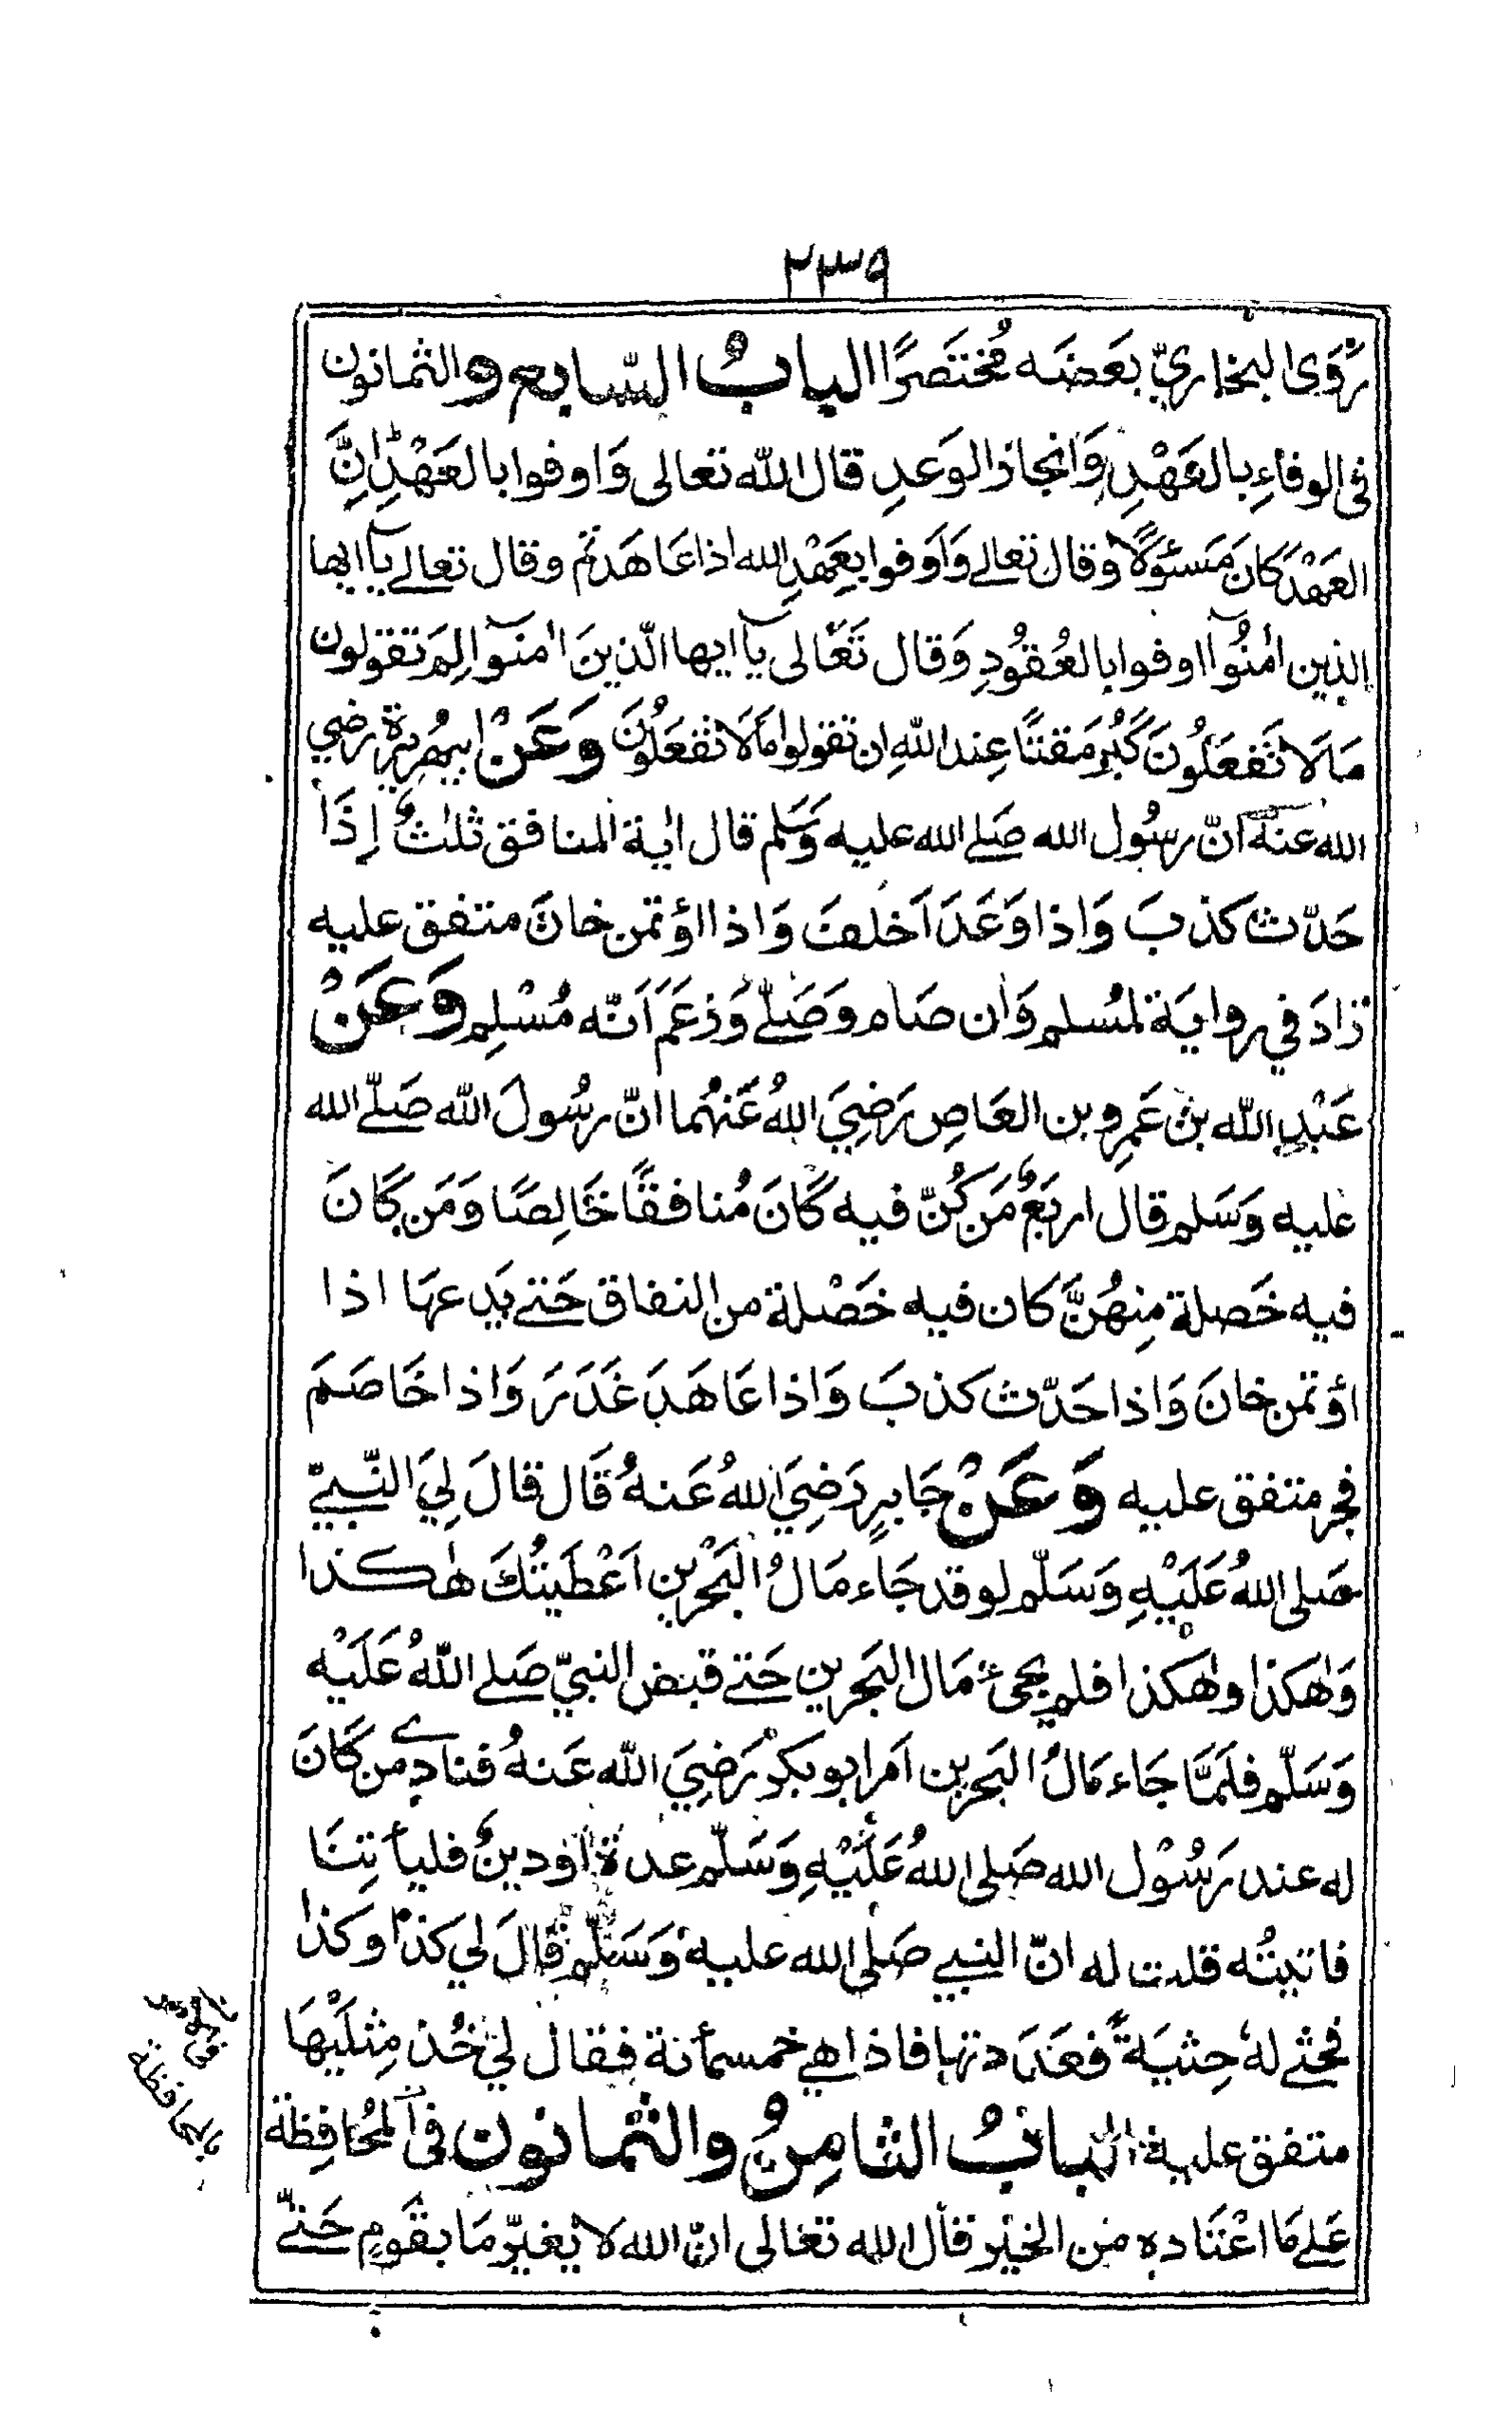 ٢٣٩
رَوَى البخاريّ بعَضَه مُختَصَرًا البابُ السّابع والثمانون
فى الوفاءِ بالعَهْدِ وَانجاز الوَعدِ قال الله تعالى وَاوفوا بالعَهْدِ اِنَّ
العَهْدَ كانَ مَسئوُلًا وقال تعالے وَاَوفوا بِعَهْدِ الله اذا عَاهَدتم وقال تعالے يآ ايها
الذين اٰمنُوآ اوفوا بالعُقوُدِ وَقال تَعَالى يآ ايها الّذينَ اٰمنَوا لِمَ تقولون
مَالَا تَفعَلُونَ كَبُرَ مَقتًا عِند اللّٰهِ ان تقولوا مَالَا تفعَلُونَ وَعَنْ ابيهُرِيرة رضي
الله عنهُ انّ رسُول الله صَلے الله عليه وَسَلم قال اٰية المنافق ثلٰثٌ إذَا
حَدّث كذبَ وَاذا وَعَدَ اَخلفَ وَاذا اؤتمن خانَ متفق عليه
زادَ في روايَة لمُسلم وَان صَام وَصَلّے وَزعَمَ اَنّه مُسْلِم وَعَنْ
عَبْدِ الله بن عَمرو بن العَاصِ رَضِيَ اللهُ عَنهُما انّ رسُولَ الله صَلّے الله
عليه وَسَلم قال اربَعٌ مَن كُنّ فيه كَانَ مُنافقًا خَالِصًا وَمَن كَانَ
فيه خَصلة مِنهُنَّ كان فيه خَصْلة من النفاق حَتے يَدعهَا اذا
اؤتمن خانَ وَاذا حَدّث كذبَ وَاذا عَاهَدَ غَدَرَ وَاذا خَاصَمَ
فجر متفق عليه وَعَنْ جَابرٍ رَضِيَ اللهُ عَنهُ قَال قالَ لِيَ النّبيّ
صَلى اللهُ عَلَيْهِ وَسَلّم لو قد جَاء مَالُ البَحْرين اَعْطَيتُكَ هٰكذا
وَهٰكذا وهٰكذا فلم يجئ مَال البَحرين حَتے قبض النبيّ صَلے اللهُ عَلَيْه
وَسَلّم فلَمّا جَاء مَالُ البَحرين اَمَر ابو بَكر رَضِيَ الله عَنهُ فنادٰے من كَانَ
له عند رَسُوْل الله صَلى اللهُ عَلَيْهِ وَسَلّم عدة اَو دينٌ فليأتِنَا
فاتيتُه قلت له انّ النبي صَلى الله عليه وَسَلّم قالَ لي كذا وكذا
فحثے لهٗ حِثيَةً فعَدَدتها فاذا هي خمسمأئة فقال لي خُذ مِثلَيْهَا
متفق عليه البابُ الثامِنُ والثمانون فى المحُافِظة
عَلے مَا اعْتَاده من الخيْر قال الله تعَالى انّ الله لا يُغيّر مَا بقومٍ حَتّے
بالمحافظة